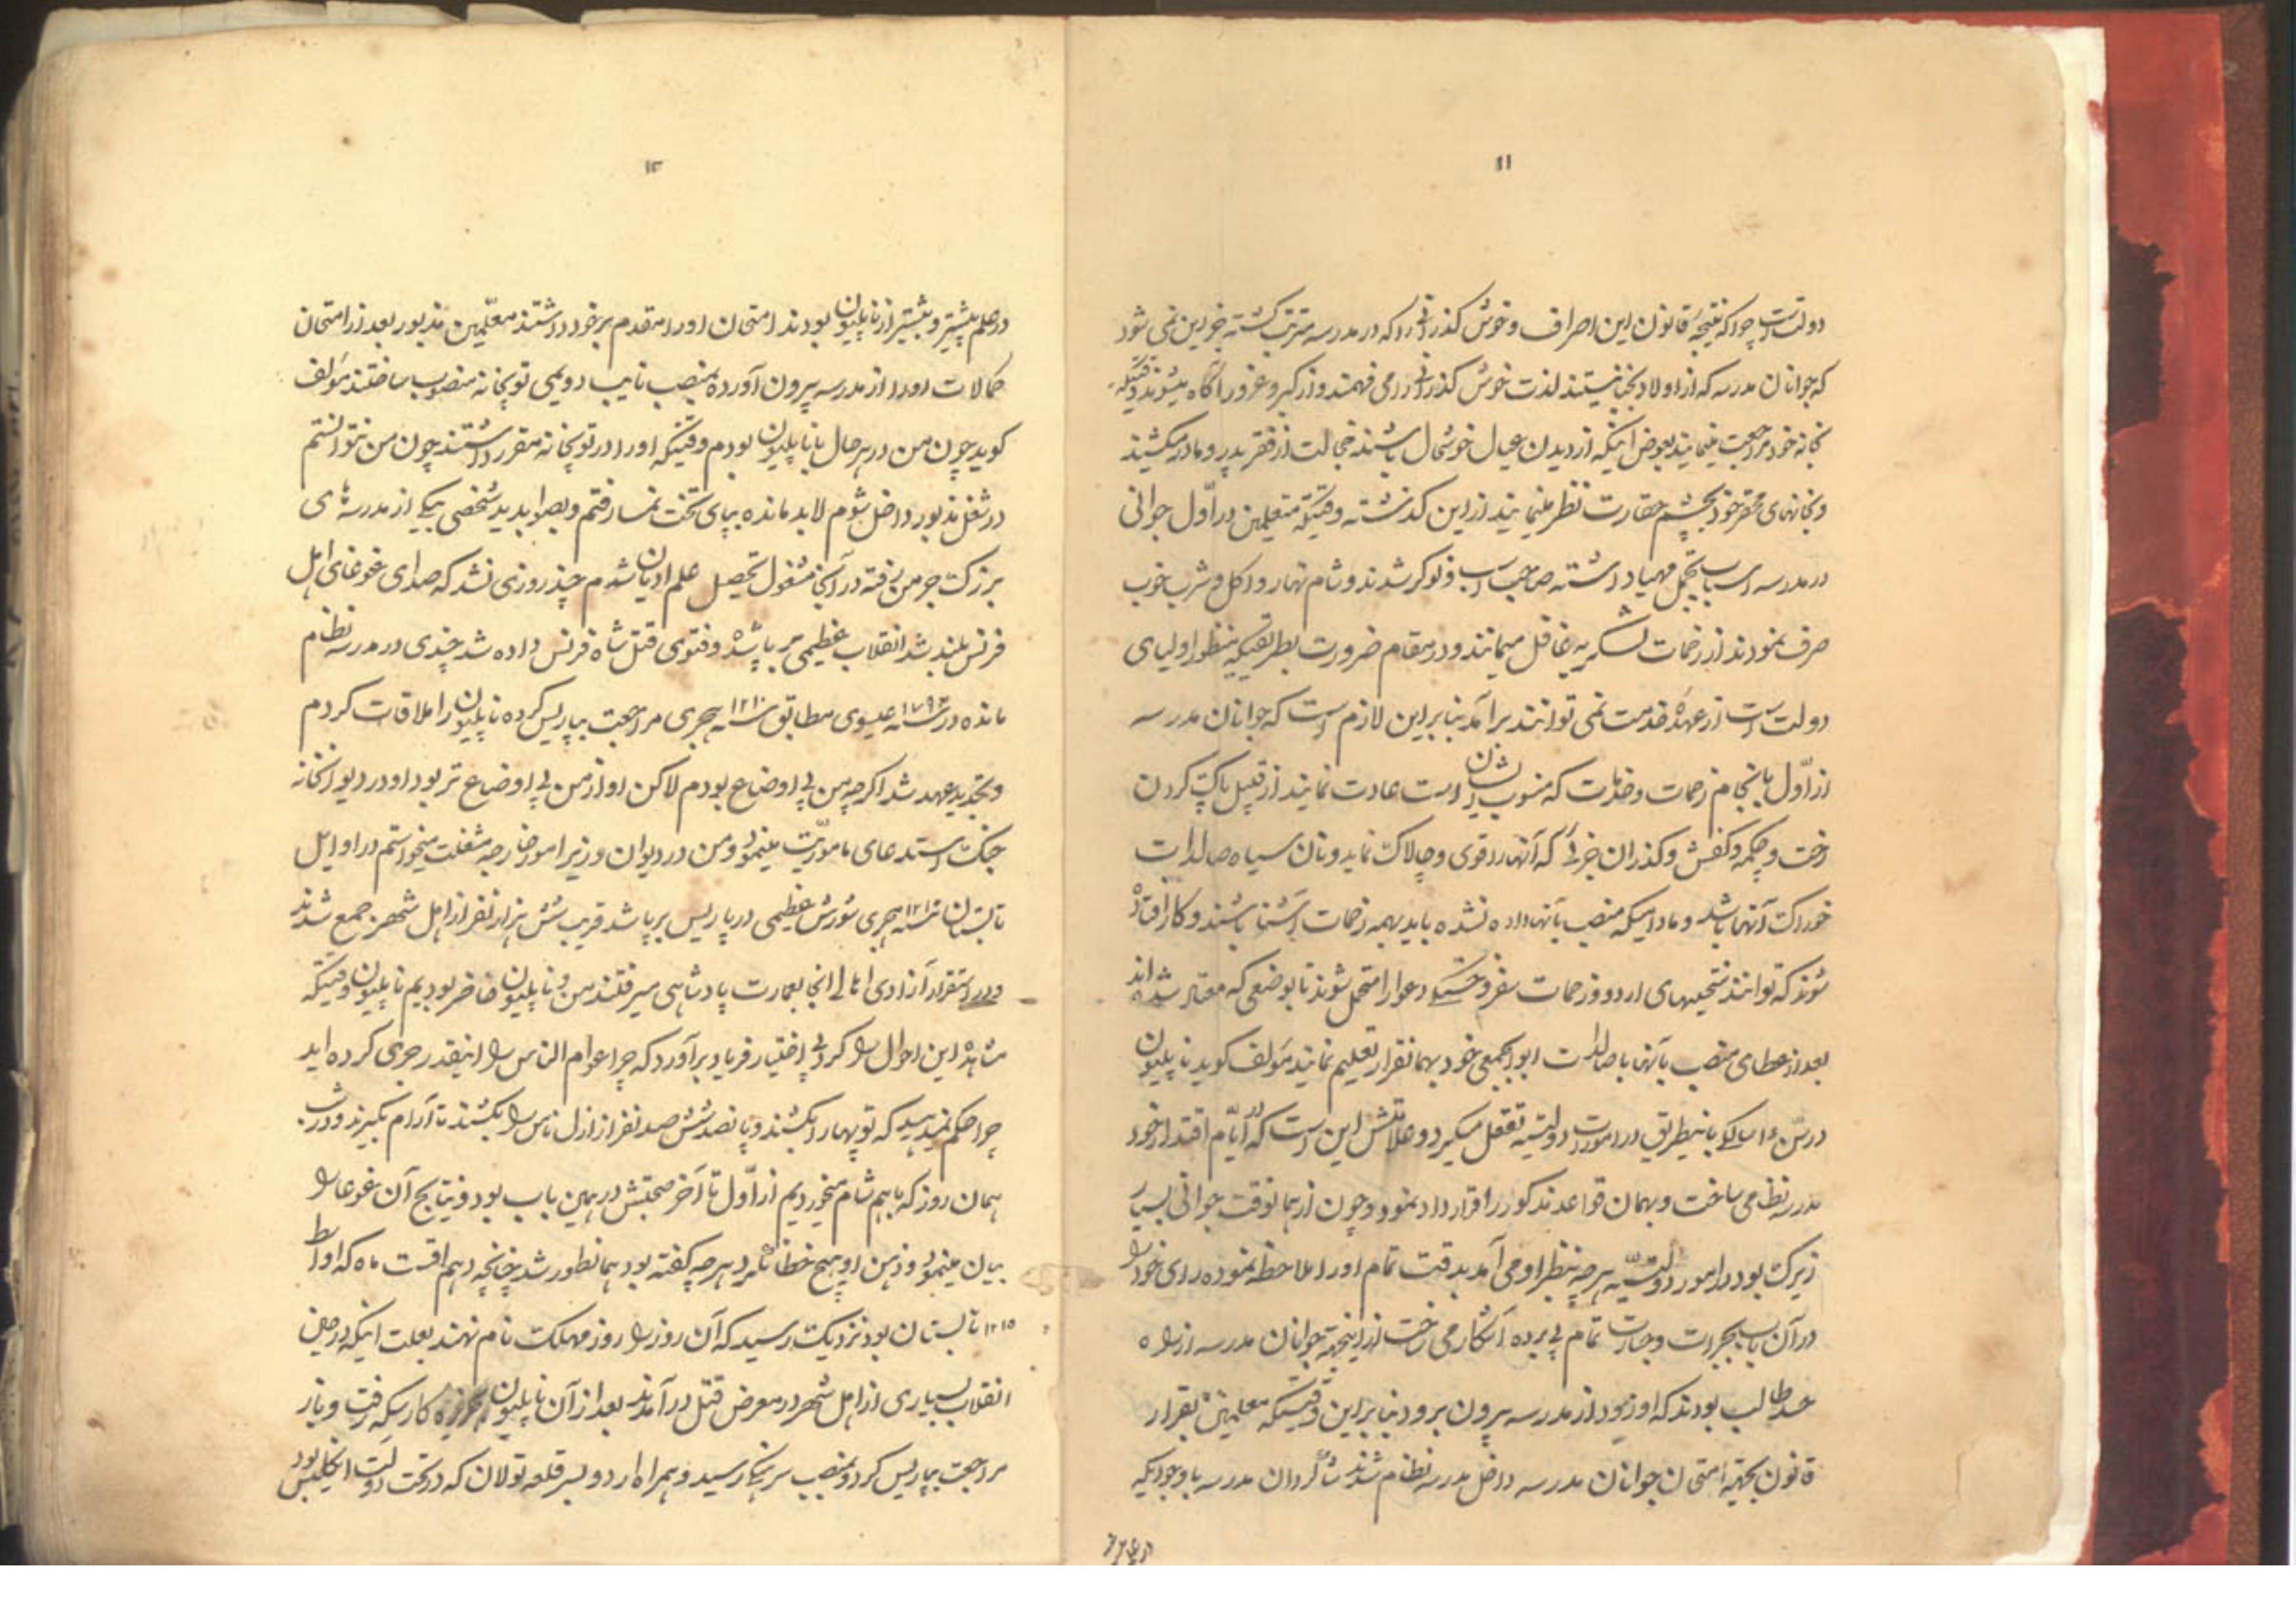 ۱۱
دولت است چرا که نتیجهٔ قانون این اصراف و خوش گذرانی را که در مدرسه مترتب گشته جز این نمی شود
که جوانان مدرسه که از اولاد نجبا نیستند لذت خوش گذرانی را می فهمند و از کبر و غرور آگاه میشوند وقتیکه
بخانه خود مراجعت مینمایند بعوض اینکه از دیدن عیال خوشحال باشند خجالت از فقر پدر و مادر میکشند
و بخانهای محقر خود بچشم حقارت نظر مینمایند از این گذشته وقتیکه متعلمین در اوّل جوانی
در مدرسه اسباب تجمل مهیا داشته صاحب اسب و نوکر شدند و شام نهار و اکل و شرب خوب
صرف نمودند از زحمات لشکریه غافل میمانند و در مقام ضرورت بطریقیکه منظور اولیای
دولت است از عهدهٔ خدمت نمی توانند برآمد بنا بر این لازم است که جوانان مدرسه
از اوّل بانجام زحمات و خدمات که منسوب بایشان است عادت نمایند از قبیل پاک کردن
رخت و چکمه و کفش و گذران جزئی که آنها را قوی و چالاک نماید و نان سیاه صالدات
خوراک آنها باشد و مادامیکه منصب بآنها داده نشده باید بهمه زحمات آشنا باشند و کار افتاده
شوند که توانند سختیهای اردو و زحمات سفر و جنگ و دعوا را متحمل شوند تا بوضعی که معتبر شده اند
بعد از عطای منصب بآنها با صالدات ابوابجمعی خود بهمانقرار تعلیم نمایند مؤلف گوید ناپلیون
در سنّ ۱۵ سالگی باینطریق در امورات دولتیه تعقل میکرد و علامتش این است که در ایّام اقتدار خود
مدرسه نظامی ساخت و بهمان قواعد مذکور را قرار داد نمود و چون از همانوقت جوانی بسیار
زیرک بود در امور دولتیّه هر چه بنظر او می آمد بدقت تمام او را ملاحظه نموده رای خود را
در آن باب بجرات و جسارت تمام بی پرده آشکار می ساخت از اینجهة جوانان مدرسه از راه
حسد طالب بودند که او زود از مدرسه بیرون برود بنا بر این وقتیکه معلمین بقرار
قانون بجهة امتحان جوانان مدرسه داخل مدرسه نظام شدند شاگردان مدرسه با وجودیکه
در علم بیشتر
۱۲
در علم پیشتر و بیشتر از ناپلیون بودند امتحان او را مقدم بر خود داشتند معلّمین مذبور بعد از امتحان
کمالات او را از مدرسه بیرون آورده بمنصب نایب دویمی توپخانه منصوب ساختند مؤلف
گوید چون من در هر حال با ناپلیون بودم وقتیکه او را در توپخانه مقرر داشتند چون من نتوانستم
در شغل مذبور داخل شوم لابد مانده بپای تخت نمسا رفتم و بصوابدید شخصی بیکی از مدرسه های
بزرگ جرمن رفته در آنجا مشغول تحصیل علم ادیان شدم چند روزی نشد که صدای غوغای اهل
فرنس بلند شد انقلاب عظیمی بر پا شده و فتوی قتل شاه فرنس داده شد چندی در مدرسه نظام
مانده در سنه ۱۷۹۲ عیسوی مطابق سنه ۱۲۱۰ هجری مراجعت بپاریس کرده ناپلیون را ملاقات کردم
و تجدید عهد شد اگر چه من بی اوضاع بودم لاکن او از من بی اوضاع تر بود او در دیوانخانه
جنگ استدعای ماموریّت مینمود و من در دیوان وزیر امور خارجه مشغلت میخواستم در اوایل
تابستان سنه ۱۲۱۰ هجری شورش عظیمی در پاریس بر پا شد قریب شش هزار نفر از اهل شهر جمع شدند
و در استقرار آزادی اهالی آنجا بعمارت پادشاهی میرفتند من و ناپلیون حاضر بودیم ناپلیون وقتیکه
مشاهدهٔ این احوال را کرد بی اختیار فریاد برآورد که چرا عوام الناس را اینقدر جری کرده اید
چرا حکم نمیدهید که توپها را بکشند و پانصد شش صد نفر از ارذل ناس را بکشند تا آرام بگیرند و در شب
همان روز که با هم شام میخوردیم از اوّل تا آخر صحبتش در همین باب بود و نتایج آن غوغا را
بیان مینمود و ذهن او هیچ خطا نکرد هر چه گفته بود همانطور شد چنانچه دهم اقست ماه که اواسط
تابستان بود نزدیک رسید که آن روز را روز مهلکت نام نهند بعلت اینکه در حین
انقلاب بسیاری از اهل شهر در معرض قتل درآمدند بعد از آن ناپلیون بجزیره کارسیکه رفت و باز
مراجعت بپاریس کرد و بمنصب سرهنگی رسید و همراه اردو بسر قلعه تولان که در تحت دولت انگلیس بود